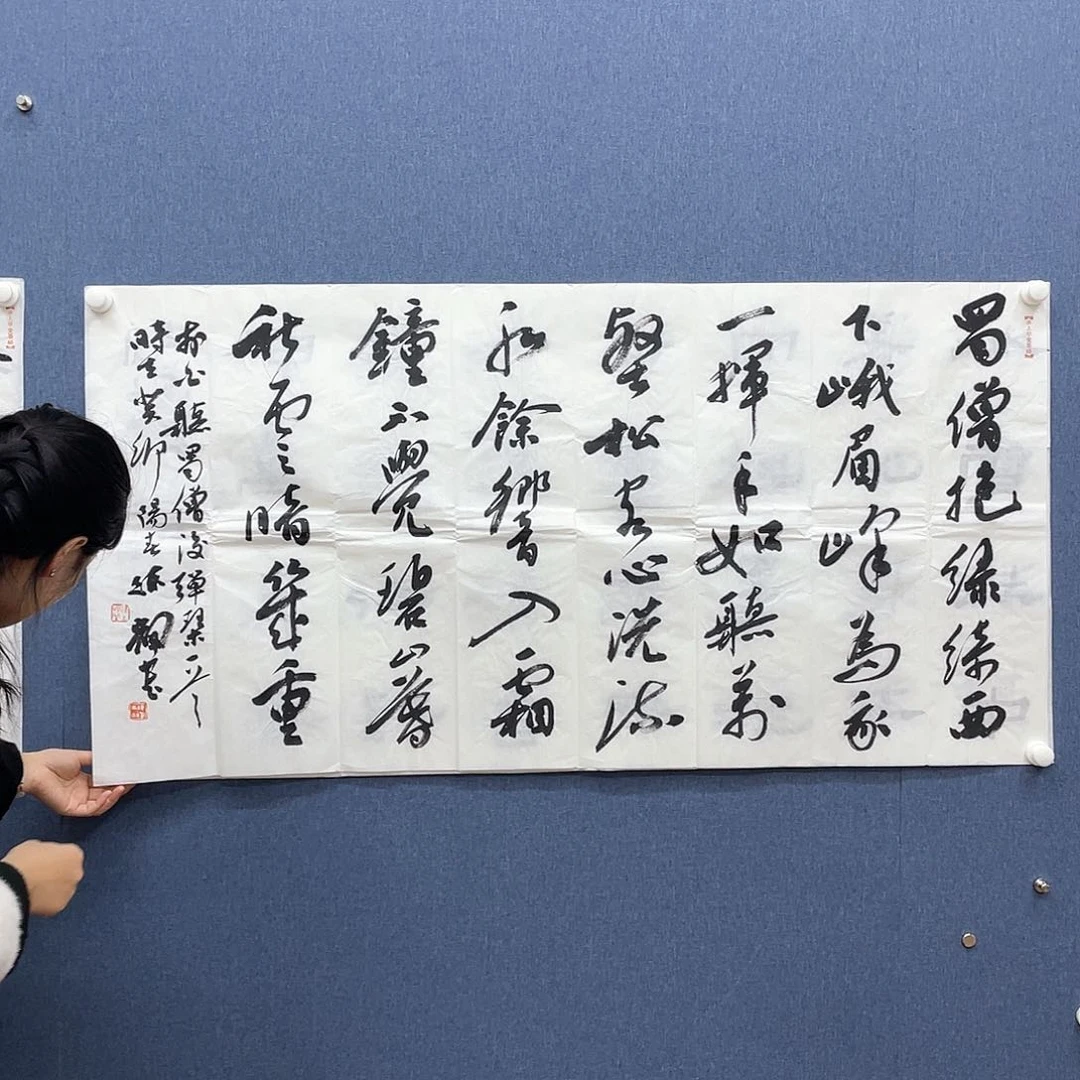 蜀僧抱綠綺西
下峨眉峰為我
一揮手如聽萬
壑松客心洗流
水餘響入霜
鐘不覺碧山暮
秋雲暗幾重
李白聽蜀僧浚彈琴一首
時在癸卯陽春